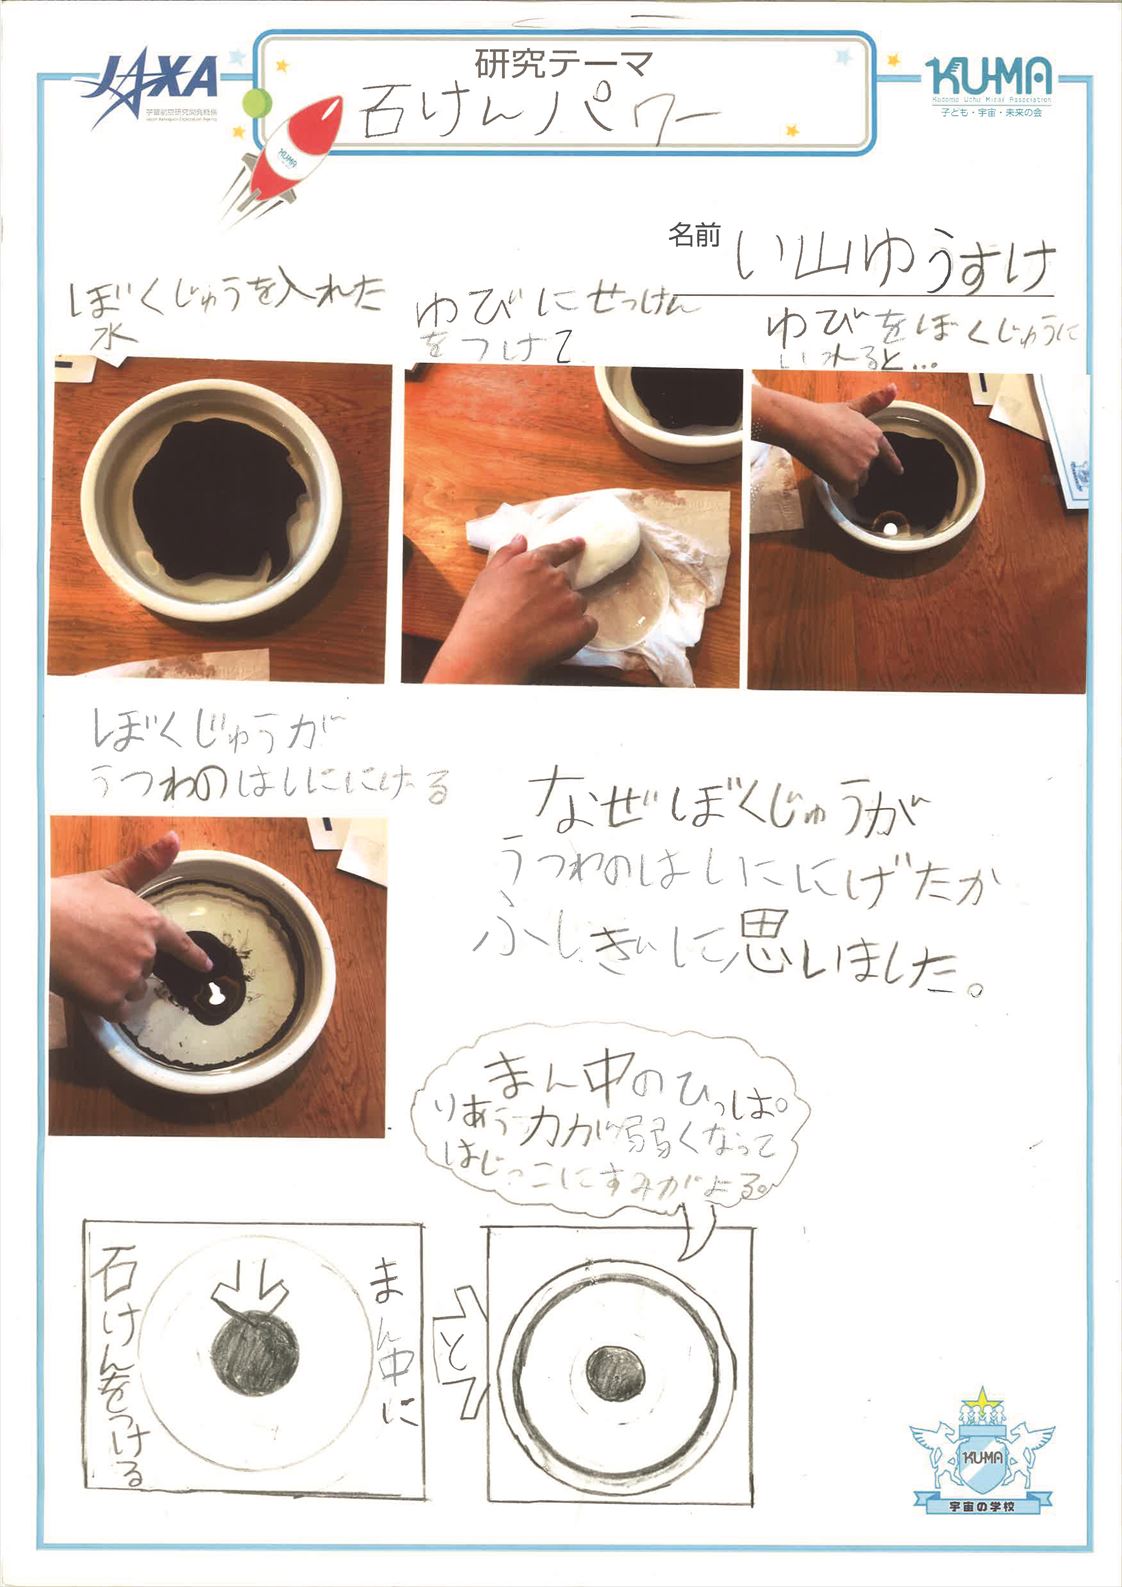 JAXA
宇宙航空研究開発機構
Japan Aerospace Exploration Agency
研究テーマ
石けんパワー
KUMA
KUMA
Kodomo Uchu Mirai Association
子ども・宇宙・未来の会
名前 い山ゆうすけ
ぼくじゅうを入れた
水
ゆびにせっけん
をつけて
ゆびをぼくじゅうに
いれると…
ぼくじゅうが
うつわのはしににげる
なぜぼくじゅうが
うつわのはしににげたか
ふしぎぃに思いました。
まん中のひっぱ
りあう力が弱くなって
はじっこにすみがよる。
まん中に
石けんをつける
と
KUMA
宇宙の学校